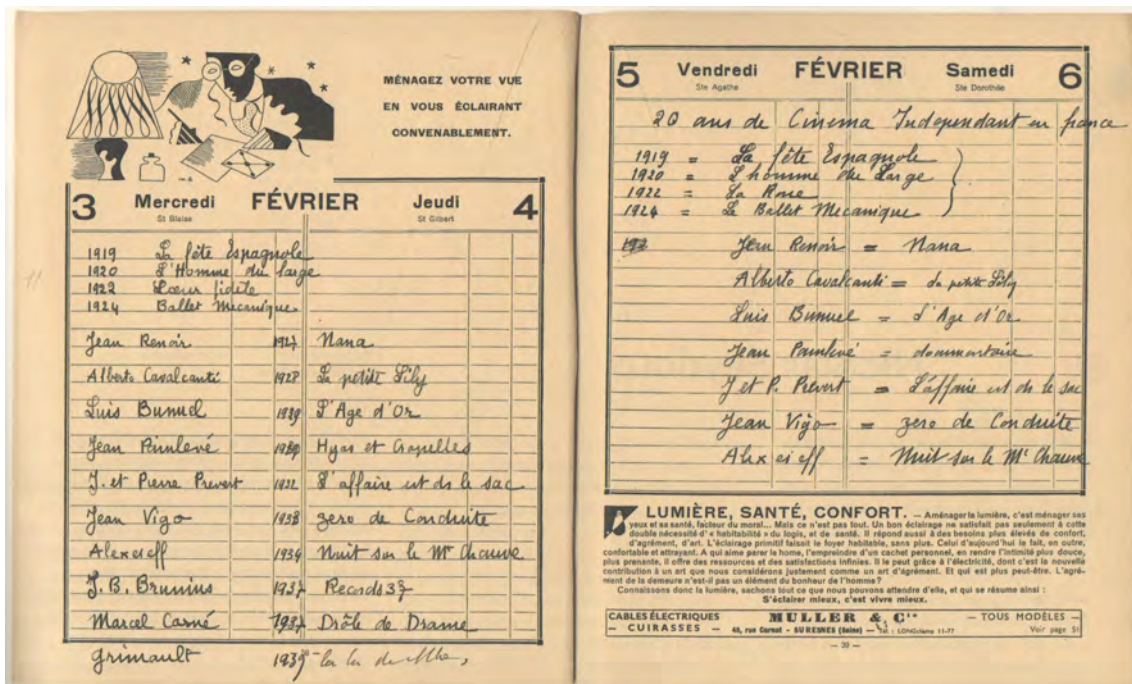 MÉNAGEZ VOTRE VUE
EN VOUS ÉCLAIRANT
CONVENABLEMENT.
3 Mercredi FÉVRIER Jeudi 4
St Blaise St Gilbert
1919 La fête Espagnole
1920 L'Homme du large
1922 Coeur fidèle
1924 Ballet Mecanique
Jean Renoir 1927 Nana
Alberto Cavalcanti 1928 La petite Lily
Luis Bunuel 1929 L'Age d'Or
Jean Painlevé Hyas et
J. et Pierre Prevert 1932 L'affaire est ds le sac
Jean Vigo 1933 zero de Conduite
Alexeieff 1934 Nuit sur le Mt Chauve
J. B. Brunius 1937 Records 37
Marcel Carné 1937 Drôle de Drame
Grimault 1939
5 Vendredi FÉVRIER Samedi 6
Ste Agathe Ste Dorothée
20 ans de Cinema Independant en france
1919 = La fête Espagnole
1920 = L'homme du Large
1922 = La Roue
1924 = Le Ballet Mecanique
Jean Renoir = Nana
Alberto Cavalcanti = La petite Lily
Luis Bunuel = L'Age d'Or
Jean Painlevé = documentaire
J et P. Prevert = L'affaire est ds le sac
Jean Vigo = zero de Conduite
Alexeieff = Nuit sur le Mt Chauve
LUMIÈRE, SANTÉ, CONFORT. — Aménager la lumière, c'est ménager ses
yeux et sa santé, facteur du moral... Mais ce n'est pas tout. Un bon éclairage ne satisfait pas seulement à cette
double nécessité d' « habitabilité » du logis, et de santé. Il répond aussi à des besoins plus élevés de confort,
d'agrément, d'art. L'éclairage primitif faisait le foyer habitable, sans plus. Celui d'aujourd'hui le fait, en outre,
confortable et attrayant. A qui aime parer le home, l'empreindre d'un cachet personnel, en rendre l'intimité plus douce,
plus prenante, il offre des ressources et des satisfactions infinies. Il le peut grâce à l'électricité, dont c'est la nouvelle
contribution à un art que nous considérons justement comme un art d'agrément. Et qui est plus peut-être. L'agré-
ment de la demeure n'est-il pas un élément du bonheur de l'homme ?
Connaissons donc la lumière, sachons tout ce que nous pouvons attendre d'elle, et qui se résume ainsi :
S'éclairer mieux, c'est vivre mieux.
CABLES ÉLECTRIQUES MULLER & Cie — TOUS MODÈLES —
— CUIRASSES — 48, rue Carnot - SURESNES (Seine) — Tél. : LONgchamp 11-77 Voir page 51
— 39 —